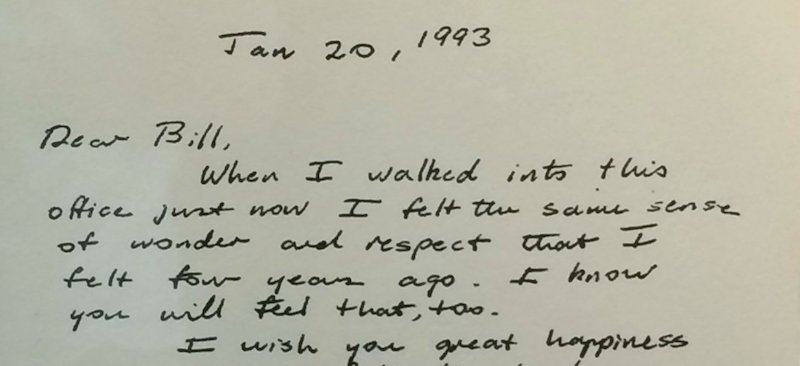 Jan 20, 1993
Dear Bill,
When I walked into this
office just now I felt the same sense
of wonder and respect that I
felt four years ago. I know
you will feel that, too.
I wish you great happiness